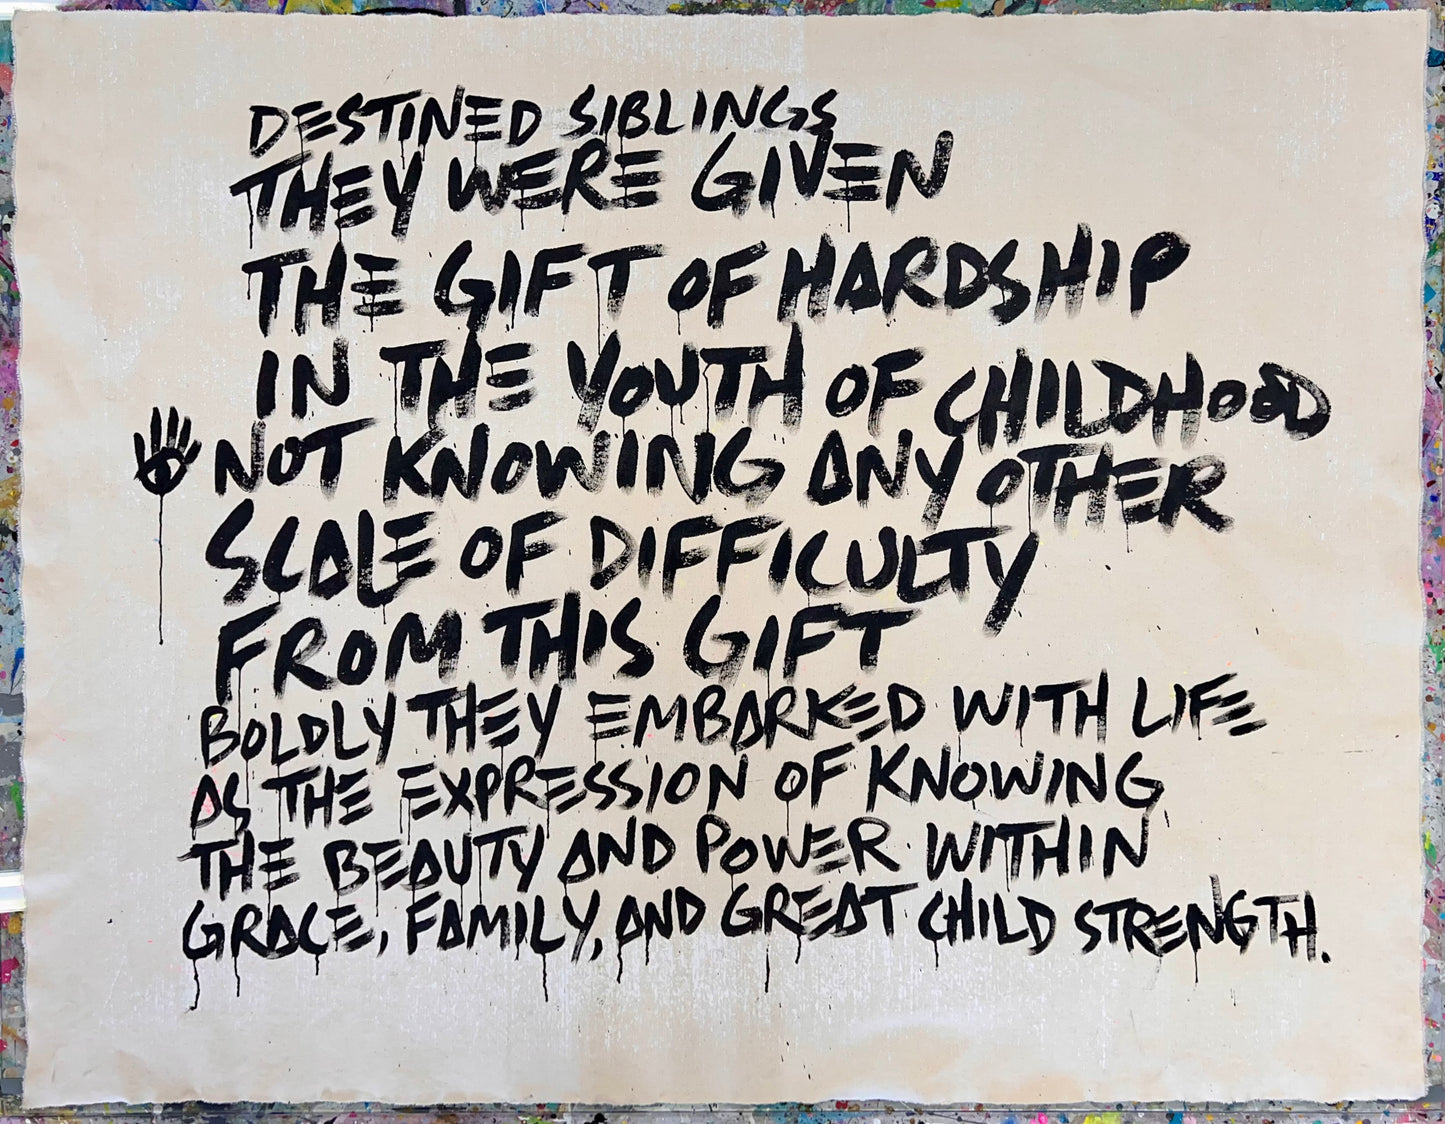 DESTINED SIBLINGS
THEY WERE GIVEN
THE GIFT OF HARDSHIP
IN THE YOUTH OF CHILDHOOD
NOT KNOWING ANY OTHER
SCALE OF DIFFICULTY
FROM THIS GIFT
BOLDLY THEY EMBARKED WITH LIFE
AS THE EXPRESSION OF KNOWING
THE BEAUTY AND POWER WITHIN
GRACE, FAMILY, AND GREAT CHILD STRENGTH.